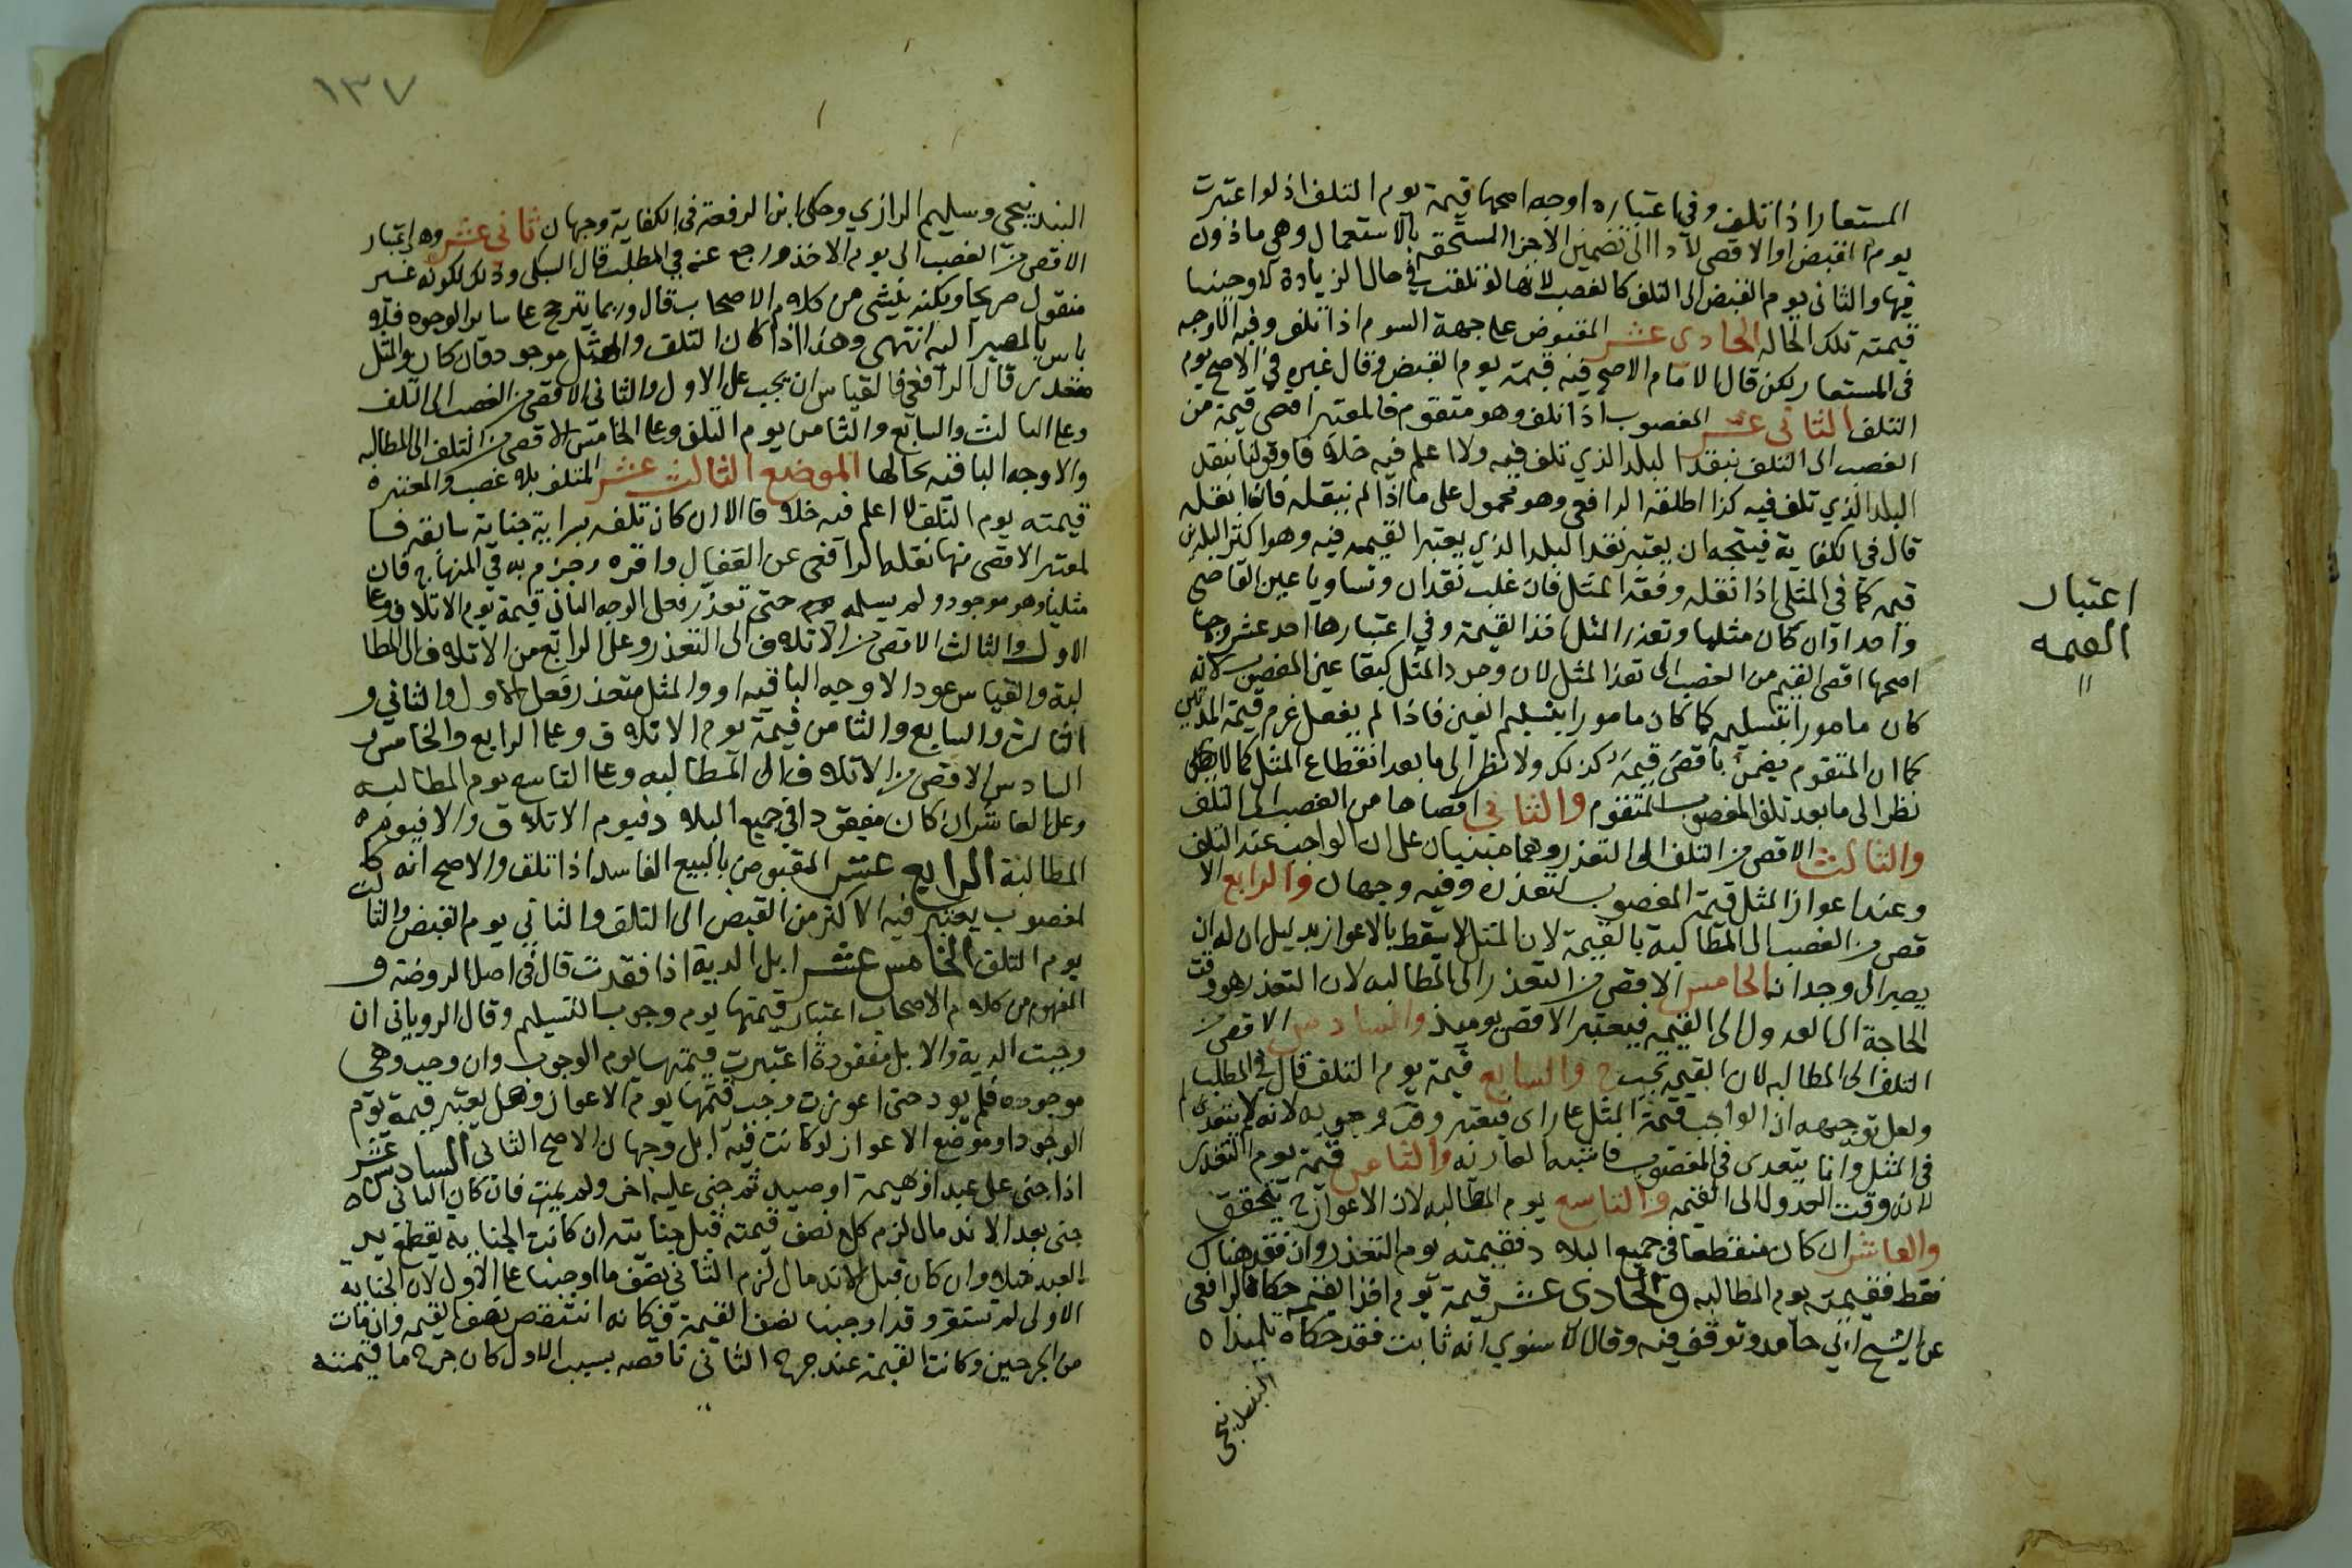 المستعار اذا تلف وفي اعتباره اوجه اصحها قيمة يوم التلف اذ لو اعتبرت
يوم القبض او الاقصى لادا الى تضمين الاجزا المستحقه بالاستعمال وهي ماذون
فيها والثاني يوم القبض الى التلف كالغصب لانها لو تلفت في حال الزيادة لاوجبنا
قيمته تلك الحاله الحادي عشر المقبوض على جهة السوم اذا تلف وفيه الاوجه
في المستعار لكن قال الامام الاصح فيه قيمة يوم القبض وقال غيره في الاصح يوم
التلف الثاني عشر المغصوب اذا تلف وهو متقوم فالمعتبر اقصى قيمة من
الغصب الى التلف بنقد البلد الذي تلف فيه ولا اعلم فيه خلافا وقولنا بنقد
البلد الذي تلف فيه كذا اطلقه الرافعي وهو محمول على ما اذا لم ينقله فان نقله
قال في الكفاية فيتجه ان يعتبر نقد البلد الذي يعتبر القيمه فيه وهو اكثر البلدين
قيمه كما في المثلي اذا نقله وفقد المثل فان غلب نقدان وتساويا عين القاضي
واحدا وان كان مثليا وتعذر المثل فذا القيمة وفي اعتبارها احد عشر وجها
اصحها اقصى القيم من الغصب الى تعذر المثل لان وجود المثل كبقا عين المغصوب لانه
كان مامورا بتسليمه كما كان مامورا بتسليم العين فاذا لم يفعل غرم قيمة المدتين
كما ان المتقوم يضمن باقصى قيمه كذلك ولا نظر الى ما بعد انقطاع المثل كما لا
نظر الى ما بعد تلف المغصوب المتقوم والثاني اقصاها من الغصب الى التلف
والثالث الاقصى من التلف الى التعذر وهما مبنيان على ان الواجب عند التلف
وعند اعواز المثل قيمة المغصوب لتعذره وفيه وجهان والرابع الا
قصى من الغصب الى المطالبة بالقيمة لان المثل لا يسقط بالاعواز بدليل ان له ان
يصبر الى وجدانه الخامس الاقصى من التعذر الى المطالبه لان التعذر هو وقت
الحاجة الى العدول الى القيمه فيعتبر الاقصى يوميذ والسادس الاقصى من
التلف الى المطالبه لان القيمه تجب ح والسابع قيمة يوم التلف قال في المطلب
ولعل توجيهه ان الواجب قيمة المثل على راى فيعتبر وقت وجوبه لانه لم يتعدى
في المثل وانما يتعدى في المغصوب فاشبه العاريه والثامن قيمة يوم التعذر
لانه وقت العدول الى القيمه والتاسع يوم المطالبه لان الاعواز ح يتحقق
والعاشر ان كان منقطعا في جميع البلاد فقيمته يوم التعذر وان فقد هناك
فقط فقيمته يوم المطالبه والحادي عشر قيمة يوم اخذ القيمه حكاه الرافعي
عن الشيخ ابي حامد وتوقف فيه وقال الاسنوي انه ثابت فقد حكاه تلميذاه
البندنيجي
اعتبار
القيمه
١٣٧
البندنيجي وسليم الرازي وحكى ابن الرفعة في الكفاية وجها ثاني عشر وهو اعتبار
الاقصى من الغصب الى يوم الاخذ ورجع عنه في المطلب قال السبكي وذلك لكونه غير
منقول صريحا ولكنه ينشي من كلام الاصحاب قال وربما يترجح على ساير الوجوه فلا
باس بالمصير اليه انتهى وهذا اذا كان التلف والمثل موجود فان كان والمثل
متعذر قال الرافعي فالقياس ان يجب على الاول والثاني الاقصى من الغصب الى التلف
وعلى الثالث والسابع والثامن يوم التلف وعلى الخامس الاقصى من التلف الى المطالبه
والاوجه الباقيه بحالها الموضع الثالث عشر المتلف بلا غصب والمعتبره
قيمته يوم التلف لا اعلم فيه خلافا الا ان كان تلفه بسراية جناية سابقه فا
لمعتبر الاقصى منها نقله الرافعي عن القفال واقره وجزم به في المنهاج فان
مثليا وهو موجود ولم يسلمه حتى تعذر فعلى الوجه الثاني قيمة يوم الاتلاف وعلى
الاول والثالث الاقصى من الاتلاف الى التعذر وعلى الرابع من الاتلاف الى المطا
لبة والقياس عود الاوجه الباقيه او والمثل متعذر فعلى الاول والثاني و
الثالث والسابع والثامن قيمة يوم الاتلاف وعلى الرابع والخامس و
السادس الاقصى من الاتلاف الى المطالبه وعلى التاسع يوم المطالبه
وعلى العاشر ان كان مفقودا في جميع البلاد فيوم الاتلاف والا فيوم
المطالبة الرابع عشر المقبوض بالبيع الفاسد اذا تلف والاصح انه كا
لمغصوب يعتبر فيه الاكثر من القبض الى التلف والثاني يوم القبض والثالث
يوم التلف الخامس عشر ابل الدية اذا فقدت قال في اصل الروضة و
المفهوم من كلام الاصحاب اعتبار قيمتها يوم وجوب التسليم وقال الروياني ان
وجبت الدية والابل مفقودة اعتبرت قيمتها يوم الوجوب وان وجب وهي
موجوده فلم يود حتى اعوزت وجب قيمتها يوم الاعواز وهل يعتبر قيمة يوم
الوجود او موضع الاعواز لو كانت فيه ابل وجهان الاصح الثاني السادس عشر
اذا جنى على عبد او بهيمة او صيد ثم جنى عليه اخر ولم يمت فان كان الثاني
جنى بعد الاندمال لزم كلا نصف قيمته قبل جنايته ان كانت الجنايه بقطع يد
العبد مثلا وان كان قبل الاندمال لزم الثاني نصف ما اوجبنا على الاول لان الجناية
الاولى لم تستقر وقد اوجبنا نصف القيمة فكانه انتقص نصف القيمه وان مات
من الجرحين وكانت القيمة عند جرح الثاني ناقصه بسبب الاول كان جرح ما قيمته